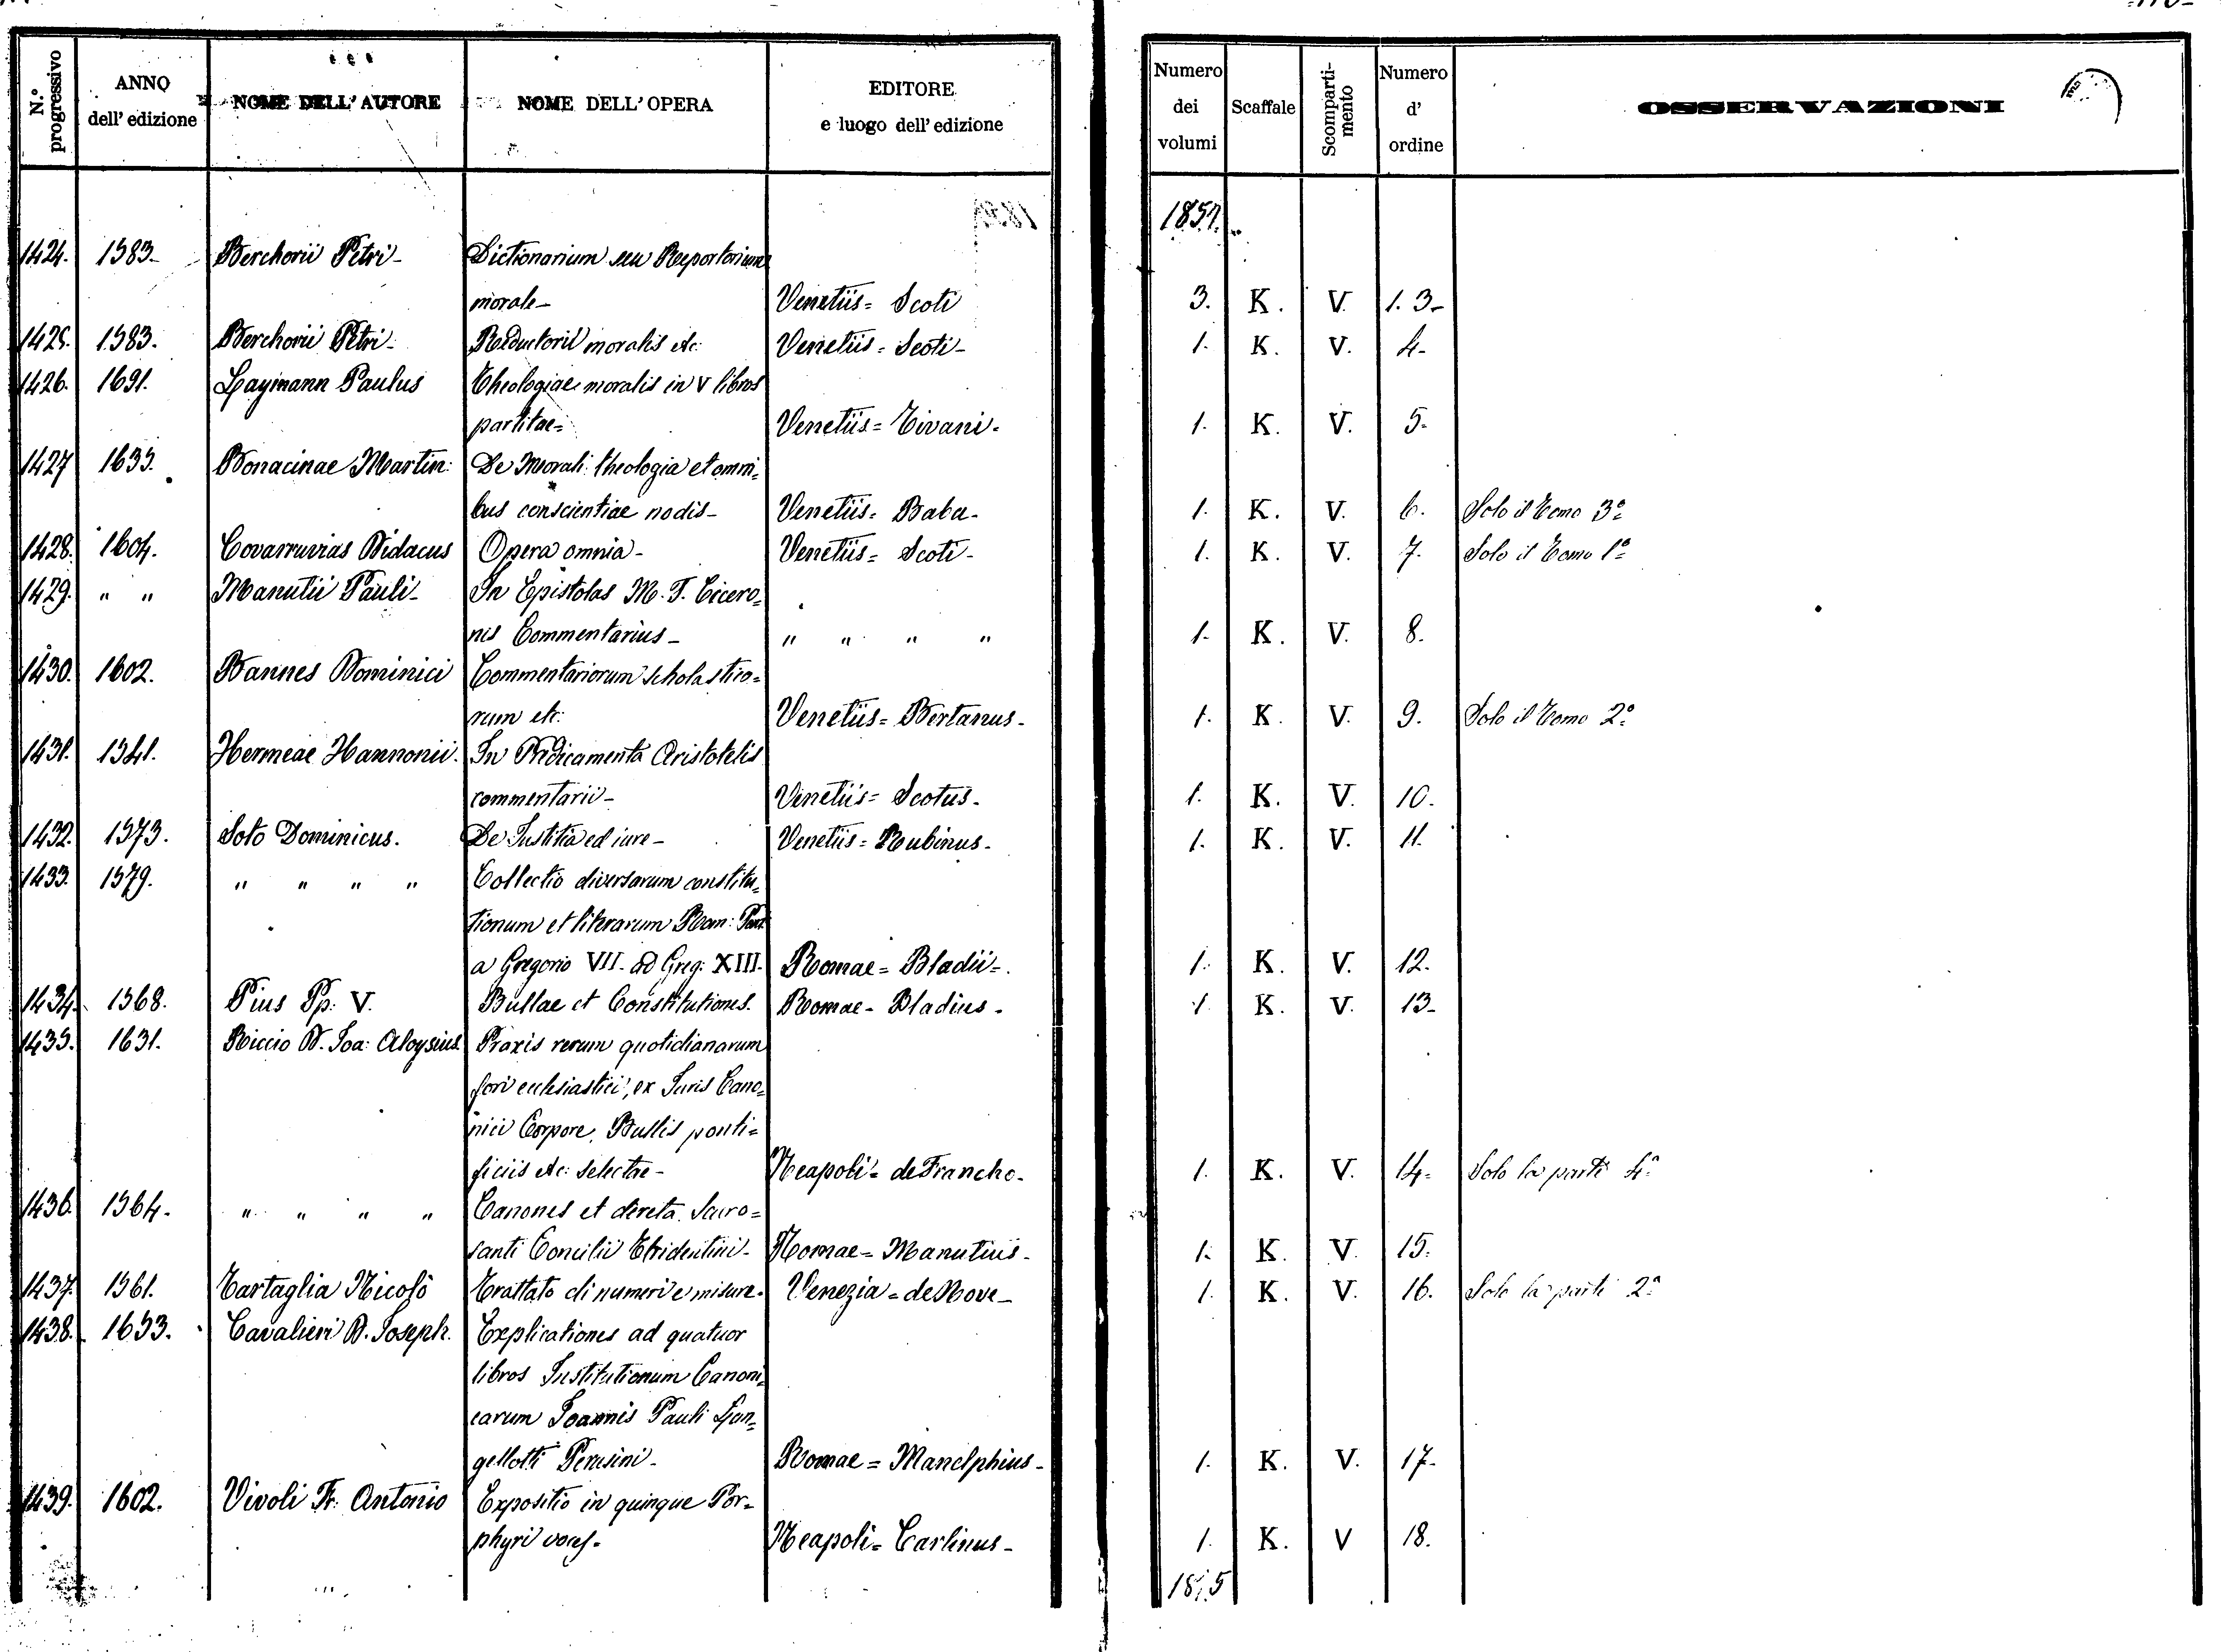 N.° progressivo
ANNO dell' edizione
NOME DELL' AUTORE
NOME DELL' OPERA
EDITORE e luogo dell' edizione
Numero dei volumi
Scaffale
Scomparti-mento
Numero d' ordine
OSSERVAZIONI
1857.
1424. 1583- Berchorii Petri- Dictionarium seu Repertorium
morale- Venetiis= Scoti 3. K. V. 1. 3-
1425. 1583. Berchorii Petri- Reductorii moralis etc: Venetiis= Scoti- 1. K. V. 4-
1426. 1691. Laymann Paulus Theologiae moralis in V libros
partitae= Venetiis= Tivani- 1. K. V. 5-
1427 1635. Bonacinae Martin: De Morali theologia et omni=
bus conscientiae nodis- Venetiis= Baba- 1. K. V. 6. Solo il Tomo 3°
1428. 1604. Covarruvias Didacus Opera omnia- Venetiis= Scoti- 1. K. V. 7. Solo il Tomo 1°
1429. " " Manutii Pauli- In Epistolas M. T. Cicero=
nis Commentarius- " " " " 1- K. V. 8.
1430. 1602. Bannes Dominici Commentariorum scholastico=
rum etc: Venetiis= Bertanus- 1. K. V. 9. Solo il Tomo 2°
1431. 1541. Hermeae Hannonii. In Predicamenta Aristotelis
commentarii- Vinetiis= Scotus- 1. K. V. 10.
1432. 1573. Soto Dominicus. De Justitia ed iure- Venetiis= Rubinus- 1. K. V. 11.
1433. 1579. " " " " Collectio diversarum constitu=
tionum et literarum Rom: Pont
a Gregorio VII. ad Greg: XIII. Romae= Bladii= 1. K. V. 12.
1434. 1568. Pius Pp. V. Bullae et Constitutiones. Romae- Bladius- 1 K. V. 13-
1435. 1631. Riccio D. Joa: Aloysius Praxis rerum quotidianarum
fori ecclesiastici, ex Juris Cano=
nici Corpore, Bullis ponti=
ficiis etc: selectae- Neapoli= de Francho- 1. K. V. 14- Solo la parte 4ª
1436. 1564. " " " " Canones et decreta Sacro=
santi Concilii Tridentini- Romae= Manutius- 1. K. V. 15.
1437. 1561. Tartaglia Nicolò Trattato di numeri e misure. Venezia= de Nove- 1. K. V. 16. Solo la parte 2ª
1438. 1633. Cavalieri D. Joseph. Explicationes ad quatuor
libros Institutionum Canoni=
carum Joannis Pauli Lan=
gellotti Perusini- Romae= Manelphius- 1. K. V. 17-
1439. 1602. Vivoli Fr: Antonio Expositio in quinque Por=
phyri voces- Neapoli= Carlinus- 1. K. V 18.